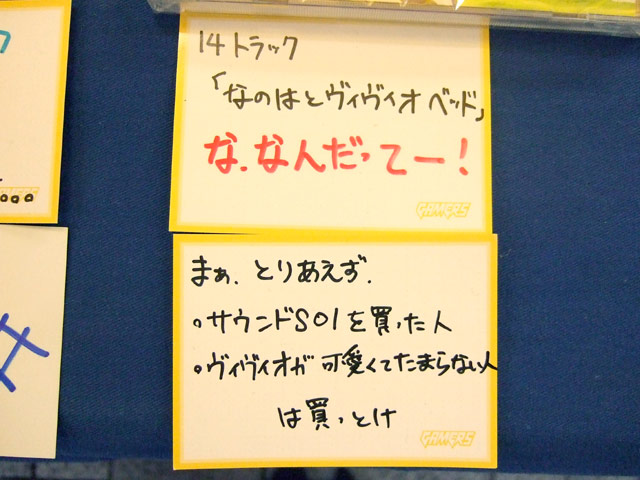 14トラック
「なのはとヴィヴィオ ベッド」
な、なんだってー！
GAMERS
まぁ、とりあえず、
。サウンドS01を買った人
。ヴィヴィオが可愛くてたまらない人
は買っとけ
GAMERS